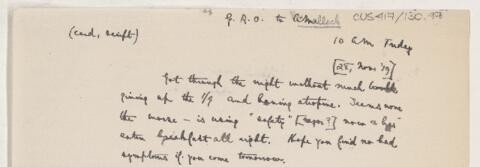 G. R. O. to A Malloch CUS417/130.98
(card, swift)
10 a.m. Friday
[28, Nov. '19]
Got through the night without much trouble
giving up the 1/9 and having atropine. Seems none
the worse – is using "safety" [razor?] now a
eaten breakfast all right. Hope you find no bad
symptoms if you come tomorrow.